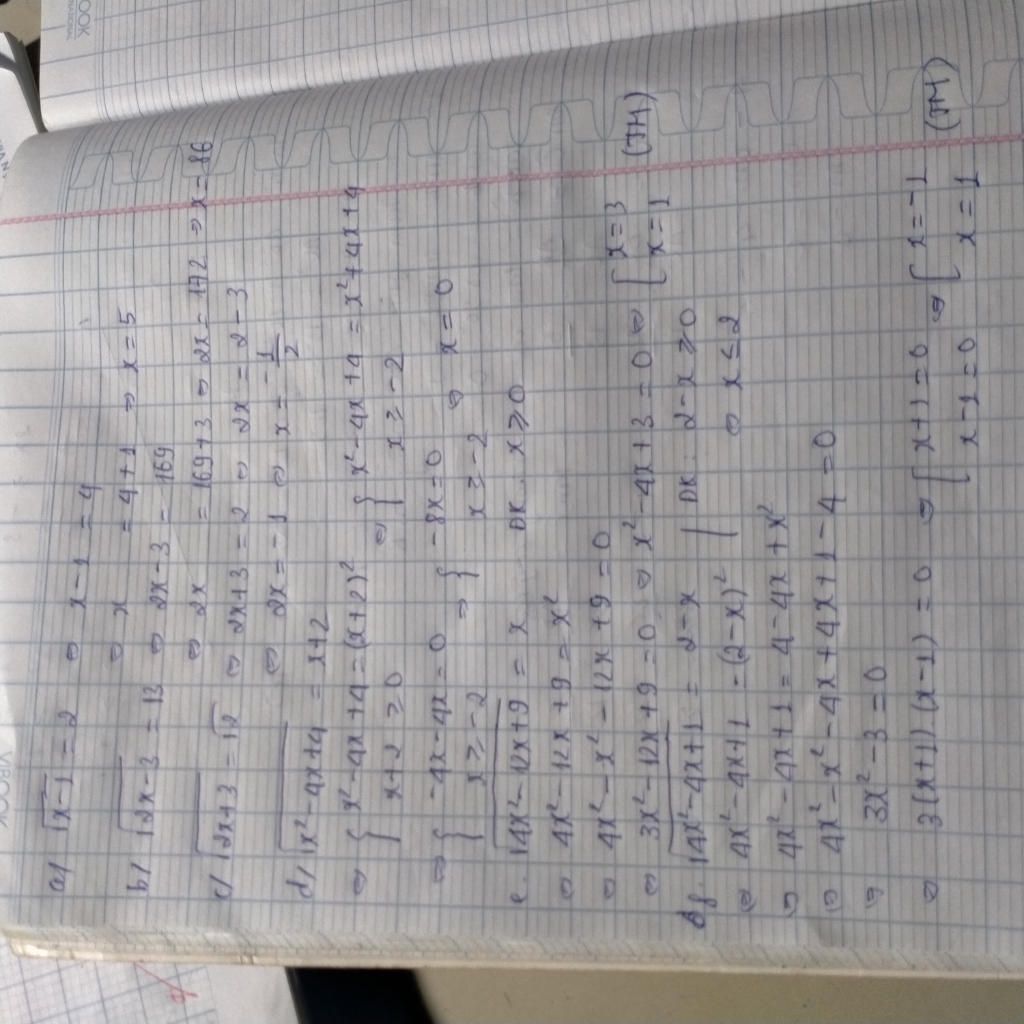 a) √x-1 = 2 ⇔ x-1 = 4
⇔ x = 4+1 ⇒ x = 5
b) √2x-3 = 13 ⇔ 2x-3 = 169
⇔ 2x = 169+3 ⇔ 2x = 172 ⇒ x = 86
c) √2x+3 = √2 ⇔ 2x+3 = 2 ⇔ 2x = 2-3
⇔ 2x = -1 ⇔ x = -1/2
d) √x²-4x+4 = x+2
⇔ { x²-4x+4 = (x+2)² ⇔ { x²-4x+4 = x²+4x+4
x+2 ≥ 0 x ≥ -2
⇔ { -4x-4x = 0 ⇒ { -8x = 0 ⇒ x = 0
x ≥ -2 x ≥ -2
e. √4x²-12x+9 = x ĐK: x ≥ 0
⇔ 4x²-12x+9 = x²
⇔ 4x²-x²-12x+9 = 0
⇔ 3x²-12x+9 = 0 ⇔ x²-4x+3 = 0 ⇔ [ x = 3 (TM)
x = 1
f. √4x²-4x+1 = 2-x | ĐK: 2-x ≥ 0
⇔ 4x²-4x+1 = (2-x)² ⇔ x ≤ 2
⇔ 4x²-4x+1 = 4-4x+x²
⇔ 4x²-x²-4x+4x+1-4 = 0
⇔ 3x²-3 = 0
⇔ 3(x+1)(x-1) = 0 ⇔ [ x+1 = 0 ⇔ [ x = -1 (TM)
x-1 = 0 x = 1
VIBOOK